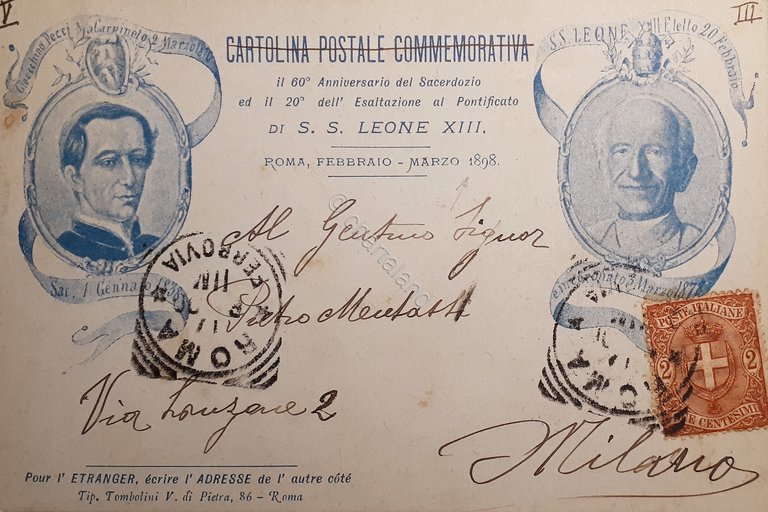 V
III
Gioacchino Pecci Na. Carpineto 2 Marzo 1810
S.S. LEONE XIII Eletto 20 Febbraio
CARTOLINA POSTALE COMMEMORATIVA
il 60° Anniversario del Sacerdozio
ed il 20° dell' Esaltazione al Pontificato
DI S. S. LEONE XIII.
ROMA, FEBBRAIO - MARZO 1898.
Sac. 1 Gennaio 1838
3 Marzo 187
Al Gentmo Signor
Pietro
Via Lanzone 2
Milano
ROMA
FERROVIA
ROMA
POSTE ITALIANE
2 2
DUE CENTESIMI
Pour l' ETRANGER, écrire l' ADRESSE de l' autre côté
Tip. Tombolini V. di Pietra, 86 - Roma